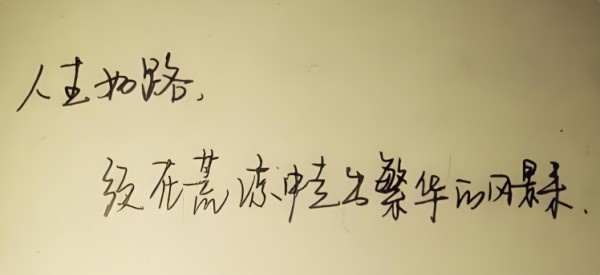 人生如路,
须在荒凉中走出繁华的风景来.